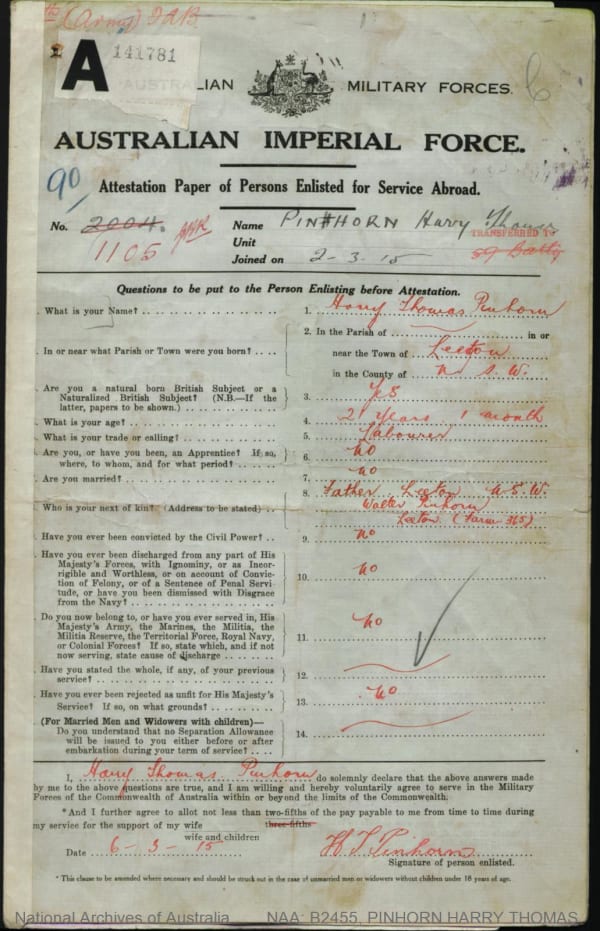 (Army) J2B.
A 141781
AUSTRALIAN MILITARY FORCES.
AUSTRALIAN IMPERIAL FORCE.
90
Attestation Paper of Persons Enlisted for Service Abroad.
No. 2004. Name PINHORN Harry Thomas
1105 Unit TRANSFERRED TO
Joined on 2-3-15 59 Battn
Questions to be put to the Person Enlisting before Attestation.
. What is your Name? 1. Harry Thomas Pinhorn
2. In the Parish of in or
. In or near what Parish or Town were you born? near the Town of Leeton
in the County of N. S. W.
. Are you a natural born British Subject or a
Naturalized British Subject? (N.B.—If the 3. Yes
latter, papers to be shown.)
. What is your age? 4. 21 Years 1 month
. What is your trade or calling? 5. Labourer
. Are you, or have you been, an Apprentice? If so, 6. No
where, to whom, and for what period?
. Are you married? 7. No
8. Father Leeton N.S.W.
. Who is your next of kin? (Address to be stated) Walter Pinhorn
Leeton (Farm 365)
. Have you ever been convicted by the Civil Power? 9. No
. Have you ever been discharged from any part of His
Majesty's Forces, with Ignominy, or as Incor-
rigible and Worthless, or on account of Convic- 10. No
tion of Felony, or of a Sentence of Penal Servi-
tude, or have you been dismissed with Disgrace
from the Navy?
. Do you now belong to, or have you ever served in, His
Majesty's Army, the Marines, the Militia, the
Militia Reserve, the Territorial Force, Royal Navy, 11. No
or Colonial Forces? If so, state which, and if not
now serving, state cause of discharge
. Have you stated the whole, if any, of your previous
service? 12.
. Have you ever been rejected as unfit for His Majesty's
Service? If so, on what grounds? 13. No
. (For Married Men and Widowers with children)—
Do you understand that no Separation Allowance
will be issued to you either before or after 14.
embarkation during your term of service?
I, Harry Thomas Pinhorn do solemnly declare that the above answers made
by me to the above questions are true, and I am willing and hereby voluntarily agree to serve in the Military
Forces of the Commonwealth of Australia within or beyond the limits of the Commonwealth.
*And I further agree to allot not less than two-fifths of the pay payable to me from time to time during
three-fifths
my service for the support of my wife
wife and children
Date 6-3-15 H T Pinhorn
Signature of person enlisted.
* This clause to be amended where necessary and should be struck out in the case of unmarried men or widowers without children under 18 years of age.
National Archives of Australia NAA: B2455, PINHORN HARRY THOMAS